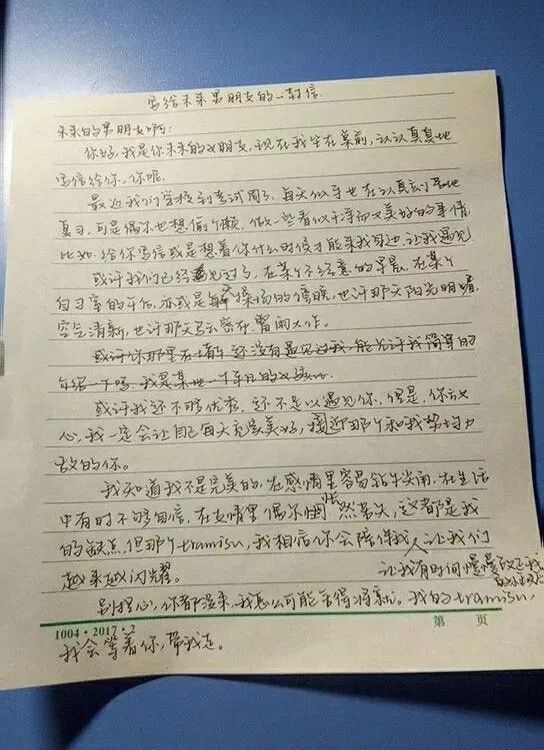 写给未来男朋友的一封信
未来的男朋友啊:
你好,我是你未来的女朋友,现在我坐在桌前,认认真真地
写信给你,你呢
最近我们学校到考试周了,每天似乎也在认真孜孜地
复习,可是偶尔也想偷个懒,做一些看似干净而又美好的事情,
比如:给你写信或是想着你什么时候才能来我身边,让我遇见
或许我们已经遇见过了,在某个不经意的早晨,在某个
自习室的午后,亦或是操场的傍晚,也许那天阳光明媚,
空气清新,也许那天乌云密布,雷雨大作。
或许你那里在 还没有遇见过我,能允许我简单的
介绍一下吗,我是某地一个
或许我还不够优秀,还不足以遇见你,但是,你放
心,我一定会让自己每天充实美好,接近那个和我势均力
敌的你。
我知道我不是完美的,在感情里容易钻牛角尖,在生活
中有时不够自信,在友情里偶尔怅然若失,这都是我
的缺点,但那个tramisu,我相信你会陪伴我,让我们
越来越闪耀。
让我有时间慢慢改正我的
别担心,你都没来,我怎么可能舍得将就。我的tramisu,
1004·2017·2 第 页
我会等着你,带我走。